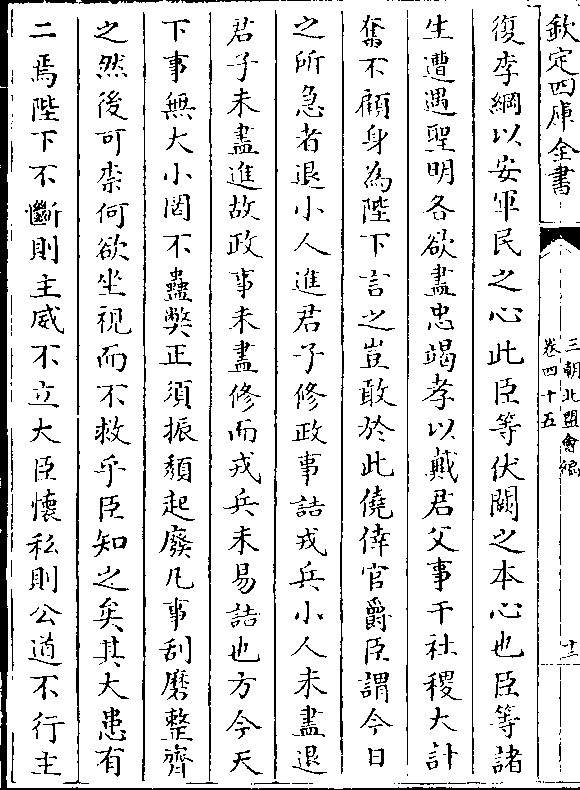 欽定四庫全書
三朝北盟會編
卷四十五
十二
復李綱以安軍民之心此臣等伏闕之本心也臣等諸
生遭遇聖明各欲盡忠竭孝以戴君父事干社稷大計
奮不顧身為陛下言之豈敢於此僥倖官爵臣謂今日
之所急者退小人進君子修政事詰戎兵小人未盡退
君子未盡進故政事未盡修而戎兵未易詰也方今天
下事無大小罔不蠱弊正須振頽起廢凡事刮磨整齊
之然後可柰何欲坐視而不救乎臣知之矣其大患有
二焉陛下不斷則主威不立大臣懷私則公道不行主